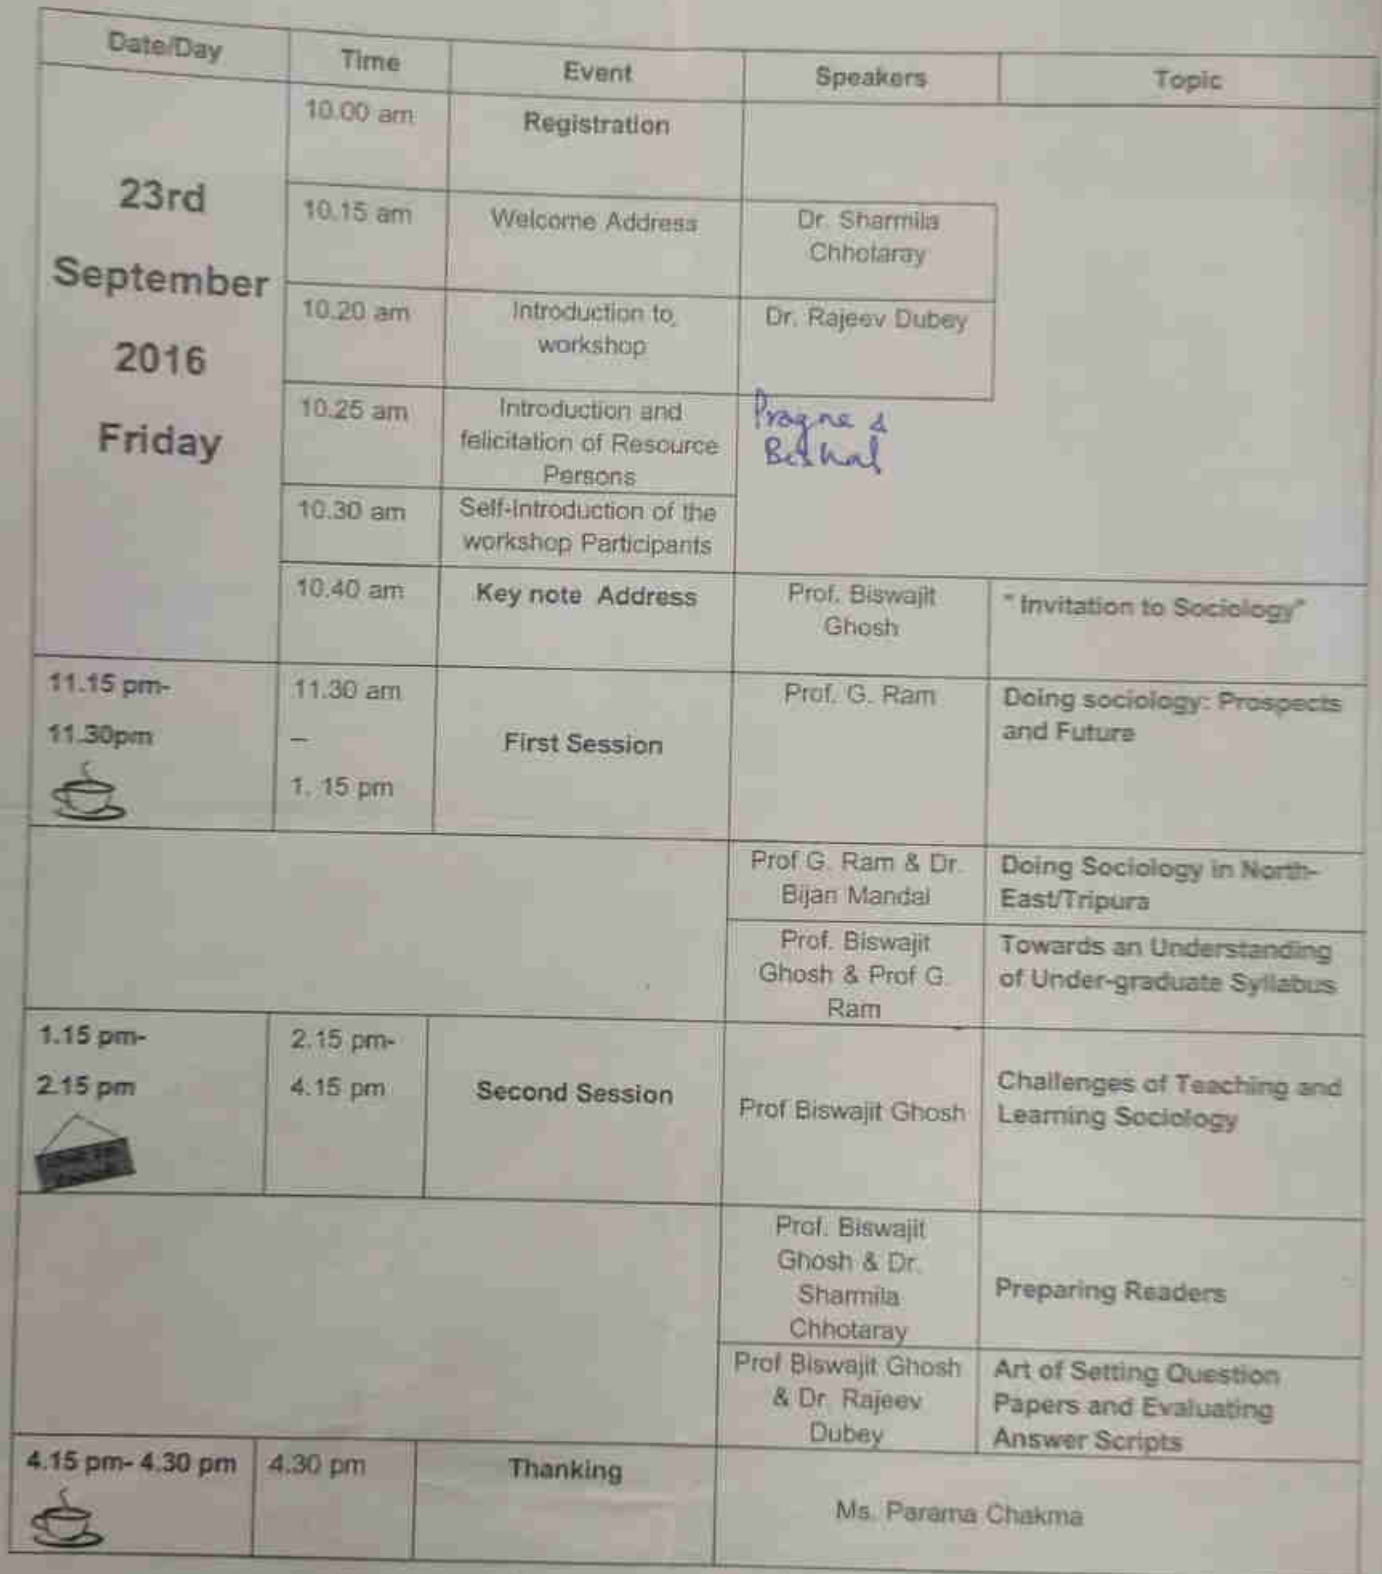 Date/Day Time Event Speakers Topic
23rd
September
2016
Friday
10.00 am Registration
10.15 am Welcome Address Dr. Sharmila
Chhotaray
10.20 am Introduction to
workshop
Dr. Rajeev Dubey
10.25 am Introduction and
felicitation of Resource
Persons
Pragna &
Bishal
10.30 am Self-Introduction of the
workshop Participants
10.40 am Key note Address Prof. Biswajit
Ghosh
" Invitation to Sociology"
11.15 pm-
11.30pm
11.30 am
–
1. 15 pm
First Session
Prof. G. Ram
Doing sociology: Prospects
and Future
Prof G. Ram & Dr.
Bijan Mandal
Doing Sociology in North-
East/Tripura
Prof. Biswajit
Ghosh & Prof G.
Ram
Towards an Understanding
of Under-graduate Syllabus
1.15 pm-
2.15 pm
2.15 pm-
4.15 pm
Second Session
Prof Biswajit Ghosh
Challenges of Teaching and
Learning Sociology
Prof. Biswajit
Ghosh & Dr.
Sharmila
Chhotaray
Preparing Readers
Prof Biswajit Ghosh
& Dr. Rajeev
Dubey
Art of Setting Question
Papers and Evaluating
Answer Scripts
4.15 pm- 4.30 pm 4.30 pm Thanking
Ms. Parama Chakma